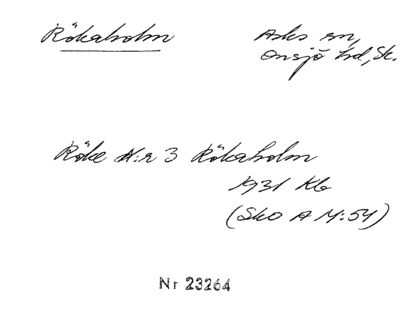 Rökaholm
Asks sn,
Onsjö hd, Sk.
Röke N:r 3 Rökaholm
1931 Kb
(Sko A M:54)
Nr 23264